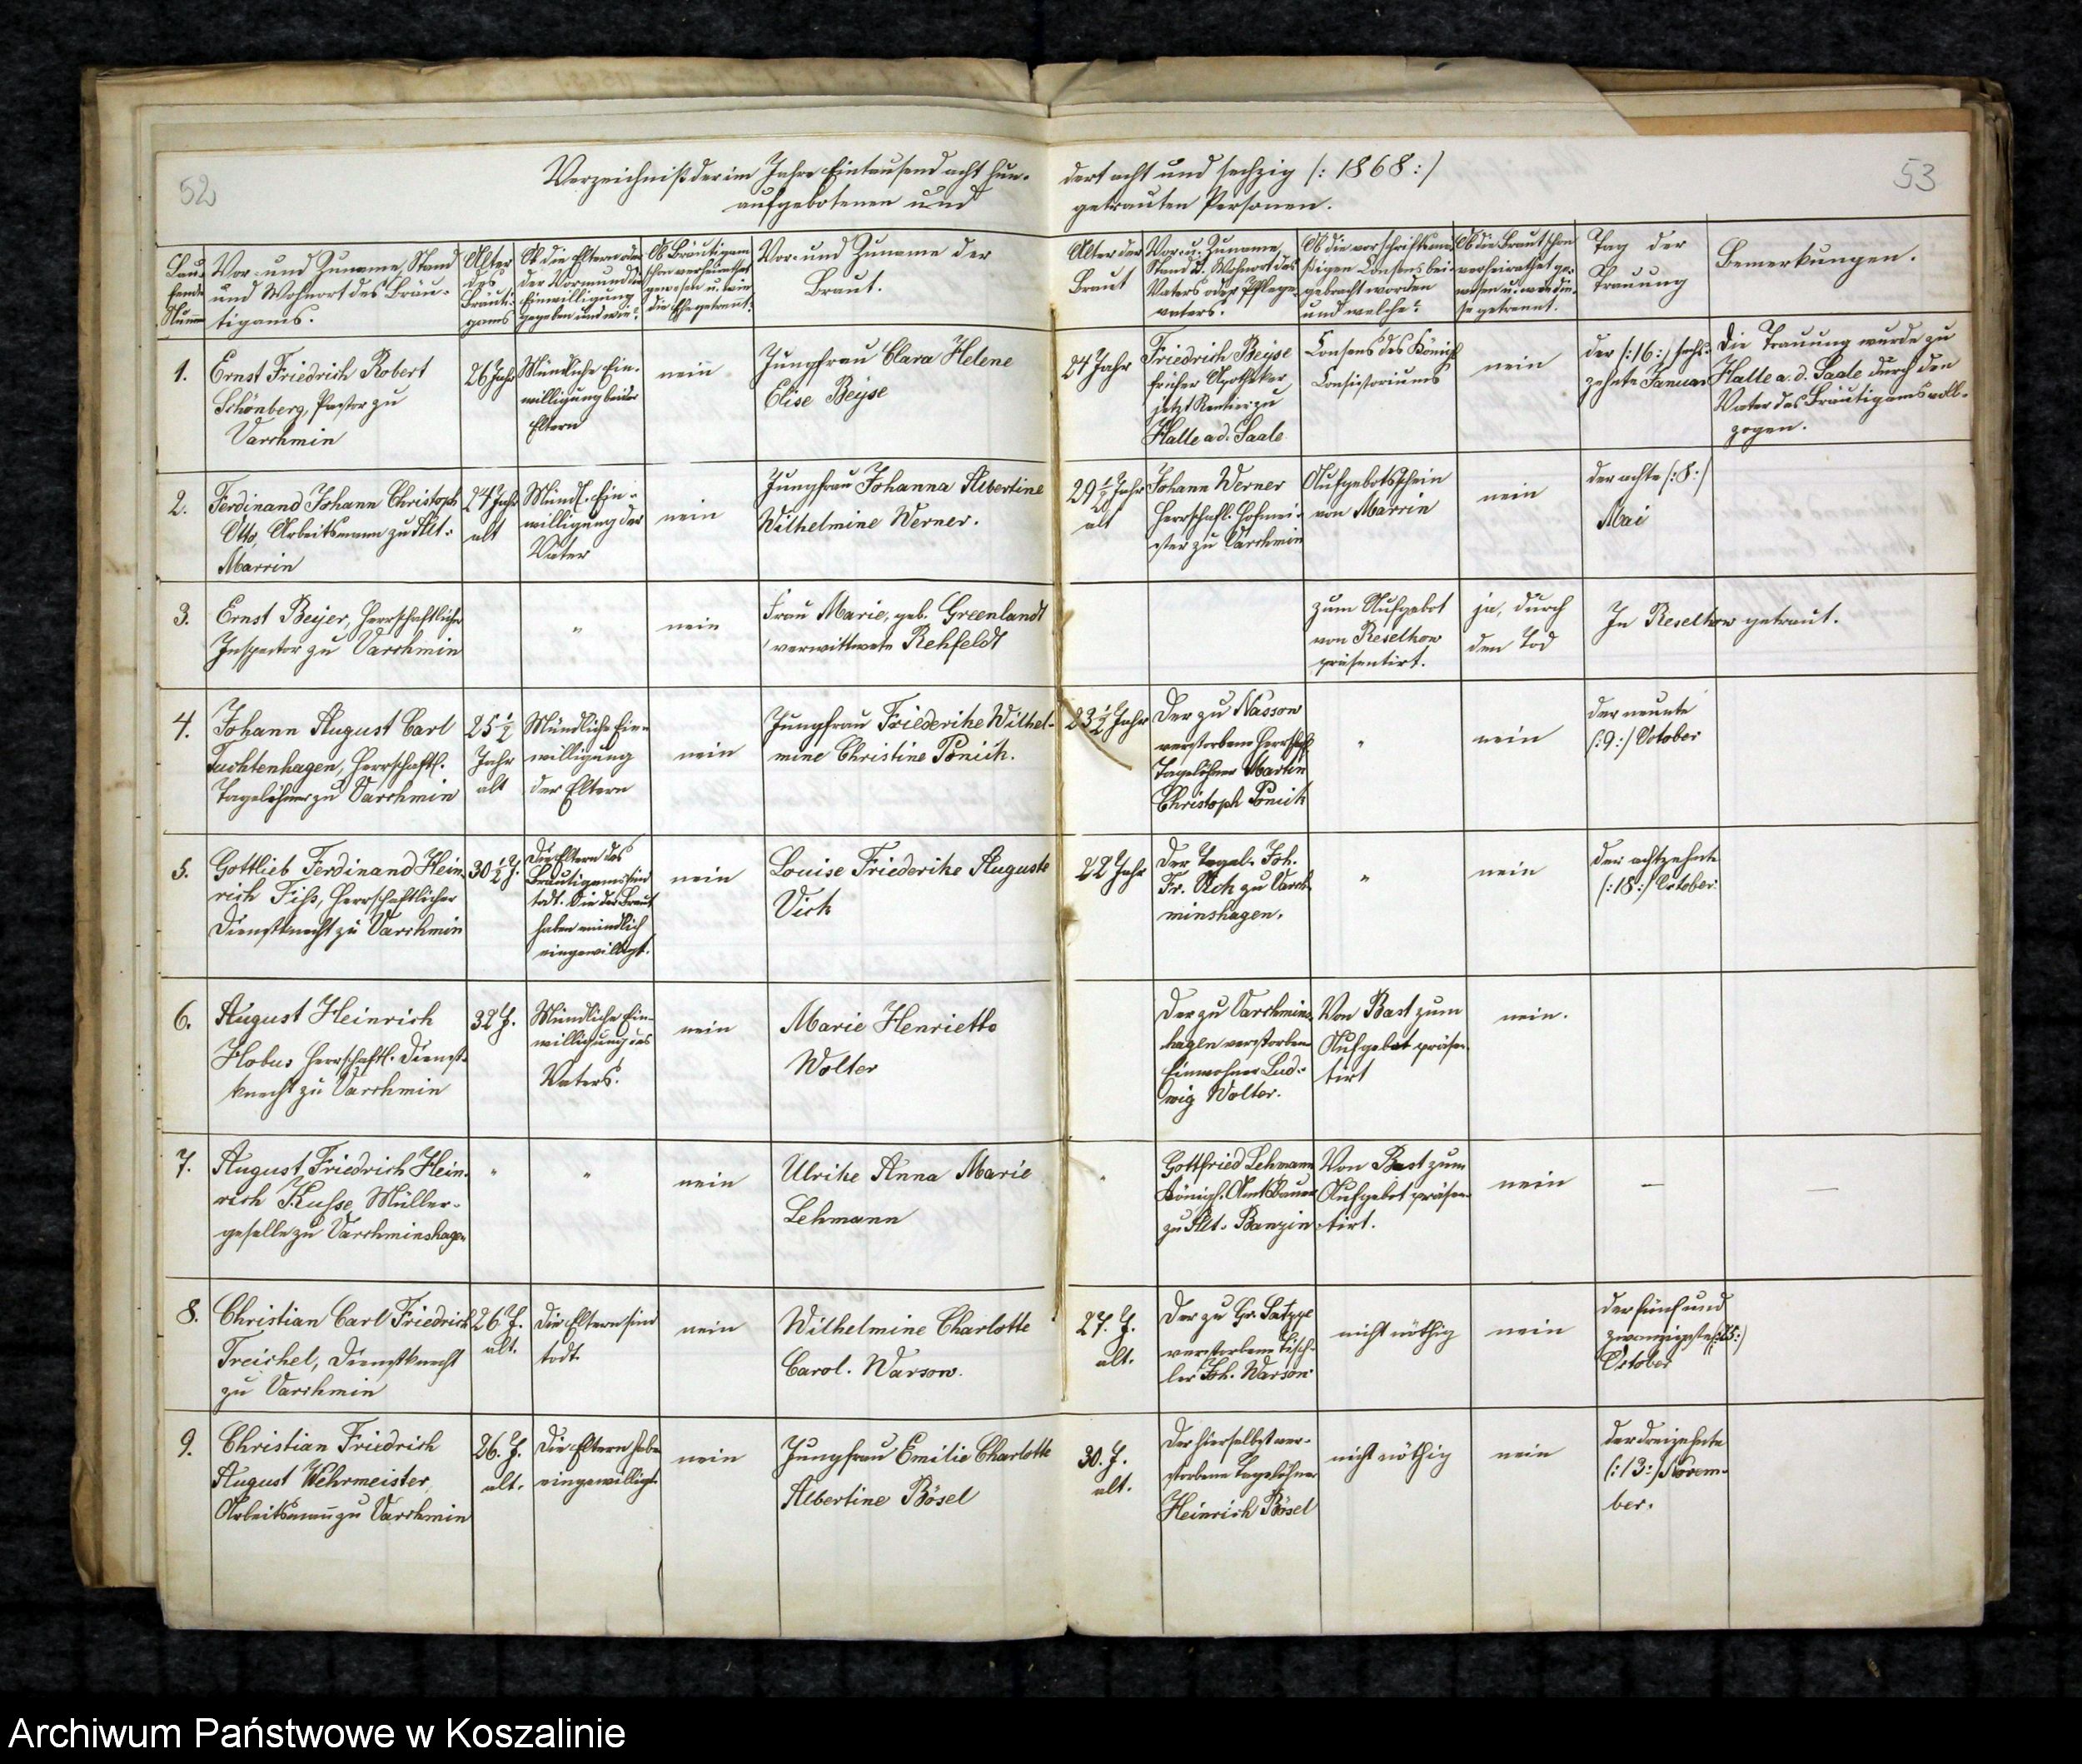 52
Verzeichniß der im Jahre Eintausend acht hun-
aufgebotenen und
dert acht und sechzig /: 1868 :/
getrauten Personen.
53
Lau-
fende
Num̄
Vor- und Zuname, Stand
und Wohnort des Bräu-
tigams.
Alter
des
Bräuti-
gams
Ob die Eltern oder
der Vormund die
Einwilligung
gegeben und wie?
Ob Bräutigam
schon verheirathet
gewesen u. wie
die Ehe getrennt.
Vor- und Zuname der
Braut.
Alter der
Braut
Vor- u. Zuname,
Stand u. Wohnort des
Vaters oder Pflege-
vaters.
Ob die vorschriftsmä-
ßigen Consens bei-
gebracht worden
und welche?
Ob die Braut schon
verheirathet ge-
wesen u. wie die-
se getrennt.
Tag der
Trauung
Bemerkungen.
1.
Ernst Friedrich Robert
Schönberg, Pastor zu
Varchmin
26 Jahr
Mündliche Ein-
willigung beider
Eltern
nein
Jungfrau Clara Helene
Elise Beyse
24 Jahr
Friedrich Beyse
früher Apotheker
jetzt Rentier zu
Halle a. d. Saale
Consens des Königl
Consistoriums
nein
der /: 16 :/ sechs-
zehnte Januar
Die Trauung wurde zu
Halle a. d. Saale durch den
Vater des Bräutigams voll-
zogen.
2.
Ferdinand Johann Christoph
Otto, Arbeitsmann zu Alt-
Marrin
24 Jahr
alt
Mündl. Ein-
willigung der
Väter
nein
Jungfrau Johanna Albertine
Wilhelmine Werner.
29 ½ Jahr
alt
Johann Werner
herrschaftl. Hofmei-
ster zu Varchmin
Aufgebotsschein
von Marrin
nein
der achte /: 8 :/
Mai
3.
Ernst Beyer, herrschaftlicher
Inspector zu Varchmin
"
nein
Frau Marie, geb. Greenlandt
verwittwete Rehfeldt
zum Aufgebot
von Reselkow
präsentirt.
ja, durch
den Tod
In Reselkow getraut.
4.
Johann August Carl
Tuchtenhagen, herrschaftl.
Tagelöhner zu Varchmin
25 ½
Jahr
alt
Mündliche Ein-
willigung
der Eltern
nein
Jungfrau Friederike Wilhel-
mine Christine Ponick.
23 ½ Jahr
Der zu Nassow
verstorbene herrschaftl
Tagelöhner Martin
Christoph Ponick
"
nein
der neunte
/: 9 :/ October
5.
Gottlieb Ferdinand Hein-
rich Fiss, herrschaftlicher
Dienstknecht zu Varchmin
30 ½ J.
Die Eltern des
Bräutigams sind
todt. Die der Braut
haben mündlich
eingewilligt.
nein
Louise Friederike Auguste
Vick
22 Jahr
Der Tagel. Joh.
Fr. Vick zu Varch-
minshagen.
"
nein
der achtzehnte
/: 18 :/ October
6.
August Heinrich
Hobus herrschaftl. Dienst-
knecht zu Varchmin
32 J.
Mündliche Ein-
willigung des
Vaters.
nein
Marie Henriette
Wolter
Der zu Varchmins-
hagen verstorbene
Einwohner Lud-
wig Wolter.
Von Bast zum
Aufgebot präsen-
tirt
nein.
7.
August Friedrich Hein-
rich Kusse, Müller-
geselle zu Varchminshagen
"
"
nein
Ulrike Anna Marie
Lehmann
"
Gottfried Lehmann
Königl. Amtsbauer
zu Alt- Banzin
Von Bast zum
Aufgebot präsen-
tirt.
nein
—
—
8.
Christian Carl Friedrich
Treichel, Dienstknecht
zu Varchmin
26 J.
alt.
Die Eltern sind
todt.
nein
Wilhelmine Charlotte
Carol. Warsow.
27. J.
alt.
Der zu Gr. Satspe
verstorbene Tisch-
ler Joh. Warsow
nicht nöthig
nein
der fünf und
zwanzigste /: 25 :/
October
9.
Christian Friedrich
August Wehrmeister,
Arbeitsmann zu Varchmin
26. J.
alt.
Die Eltern haben
eingewilligt.
nein
Jungfrau Emilie Charlotte
Albertine Bösel
30. J.
alt.
Der hierselbst ver-
storbene Tagelöhner
Heinrich Bösel
nicht nöthig
nein
der dreizehnte
/: 13 :/ Novem-
ber.
Archiwum Państwowe w Koszalinie